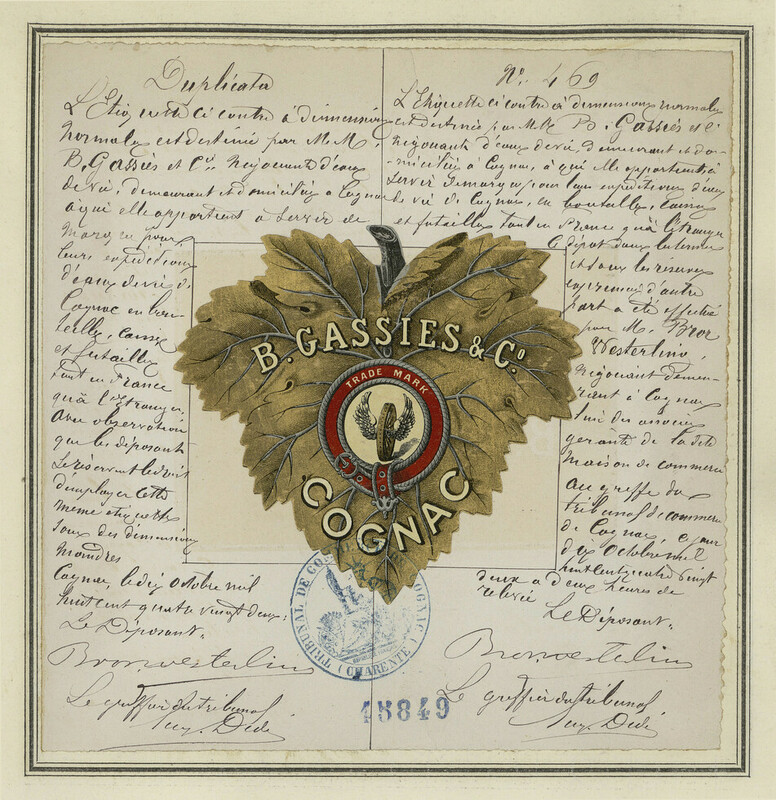 Duplicata
L'Etiquette ci contre à dimensions
normales est destinée par M.M.
B. Gassiès et Cie. Négociants d'eaux
de vie, demeurant et domiciliés à Cognac
à qui elle appartient à servir de
marque pour
leurs expéditions
d'eaux de vie de
Cognac en bou-
teilles, caisses
et futailles
tant en France
qu'à l'Etranger.
Avec observation
que les déposants
se réservent le droit
d'employer cette
même étiquette
sous des dimensions
moindres
Cognac, le dix Octobre mil
huit cent quatre vingt deux.
Le Déposant.
Bror Westerlino
Le greffier du tribunal
Aug. Dedé
No. 469
L'Etiquette ci contre à dimensions normales
est destinée par MM. B. Gassiès et Cie
Négociants d'eaux de vie, demeurant et do-
-miciliés à Cognac, à qui elle appartient à
servir de marque pour leurs expéditions d'eaux
de vie de Cognac, en bouteilles, caisses
et futailles tant en France qu'à l'étranger
Le dépôt dans les termes
et sous les réserves
exprimées d'autre
part a été effectué
par M. Bror
Westerlino,
Négociant demeu-
rant à Cognac
l'un des associés
gérants de la dite
maison de commerce
au greffe du
tribunal de commerce
de Cognac, ce jour
dix Octobre mil
huit cent quatre vingt
deux à deux heures de
relevée
Le Déposant.
Bror Westerlino
Le greffier du tribunal
Aug. Dedé
B. GASSIES & Co.
TRADE MARK
COGNAC
TRIBUNAL DE COGNAC (CHARENTE)
45849